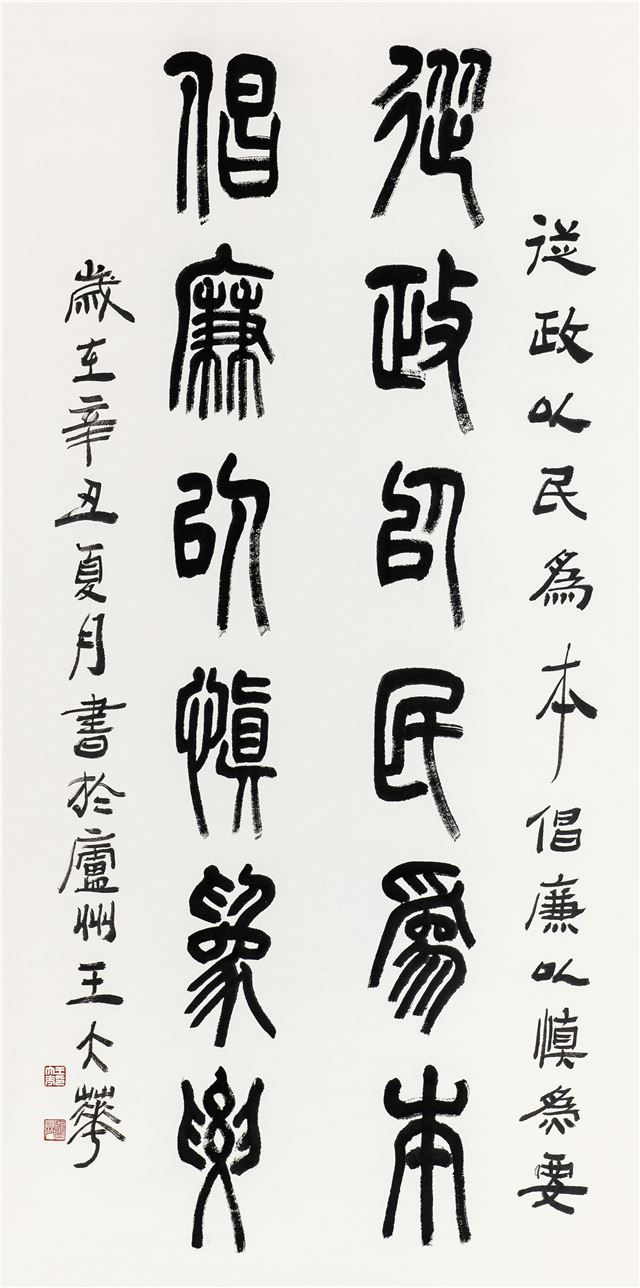 從政以民爲本倡廉以慎爲要
從政以民爲本
倡廉以慎爲要
歲在辛丑夏月書於廬州王大華